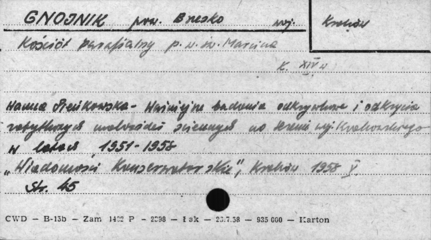 GNOJNIK pow. Brzesko woj. Kraków
Kościół parafialny p. w. św. Marcina
K. XIV w
Hanna Pieńkowska - Ważniejsze badania odkrywkowe i odkrycia
zabytkowych malowideł ściennych na terenie woj. Krakowskiego
w latach 1951-1958
„Wiadomości Konserwatorskie", Kraków 1958 V.
Str. 45
CWD — B-13b — Zam 1402 P — 2298 — Łak — 23.7.58 — 935 000 — Karton